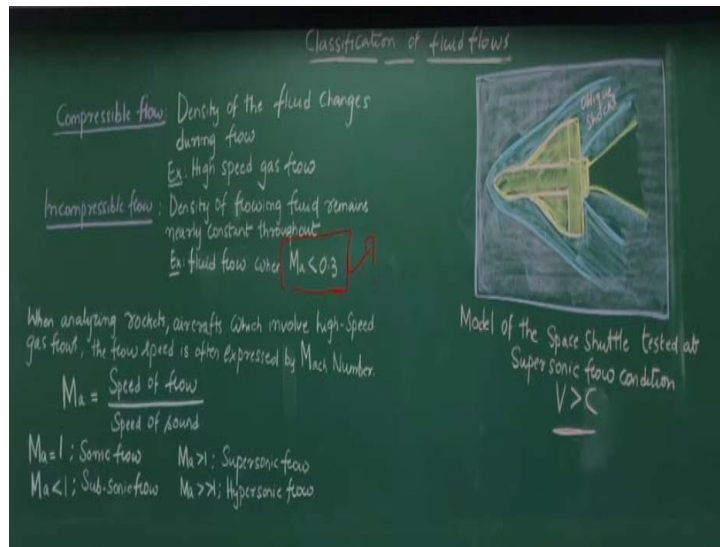 Classification of fluid flows
Compressible flow: Density of the fluid changes
during flow
Ex: High speed gas flow
Incompressible flow: Density of flowing fluid remains
nearly constant throughout
Ex: fluid flow when Ma < 0.3
When analyzing rockets, aircrafts which involve high-speed
gas flows, the flow speed is often expressed by Mach Number.
Ma = Speed of flow
Speed of sound
Ma = 1; Sonic flow Ma >1; Supersonic flow
Ma < 1; Sub-sonic flow Ma >>1; Hypersonic flow
oblique
shocks
Model of the Space Shuttle tested at
Supersonic flow condition
V > C